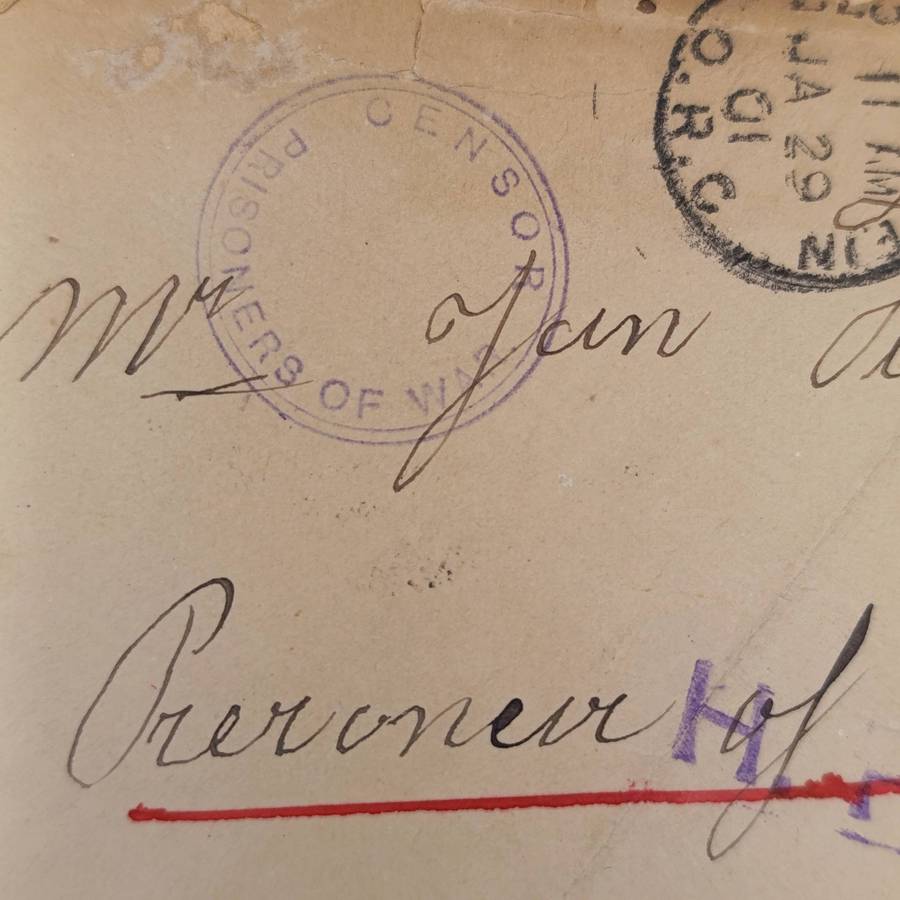 CENSOR
PRISONERS OF WAR
O.R.C
11 AM
JA 29
01
Mr Jan
Preroneir of
H.